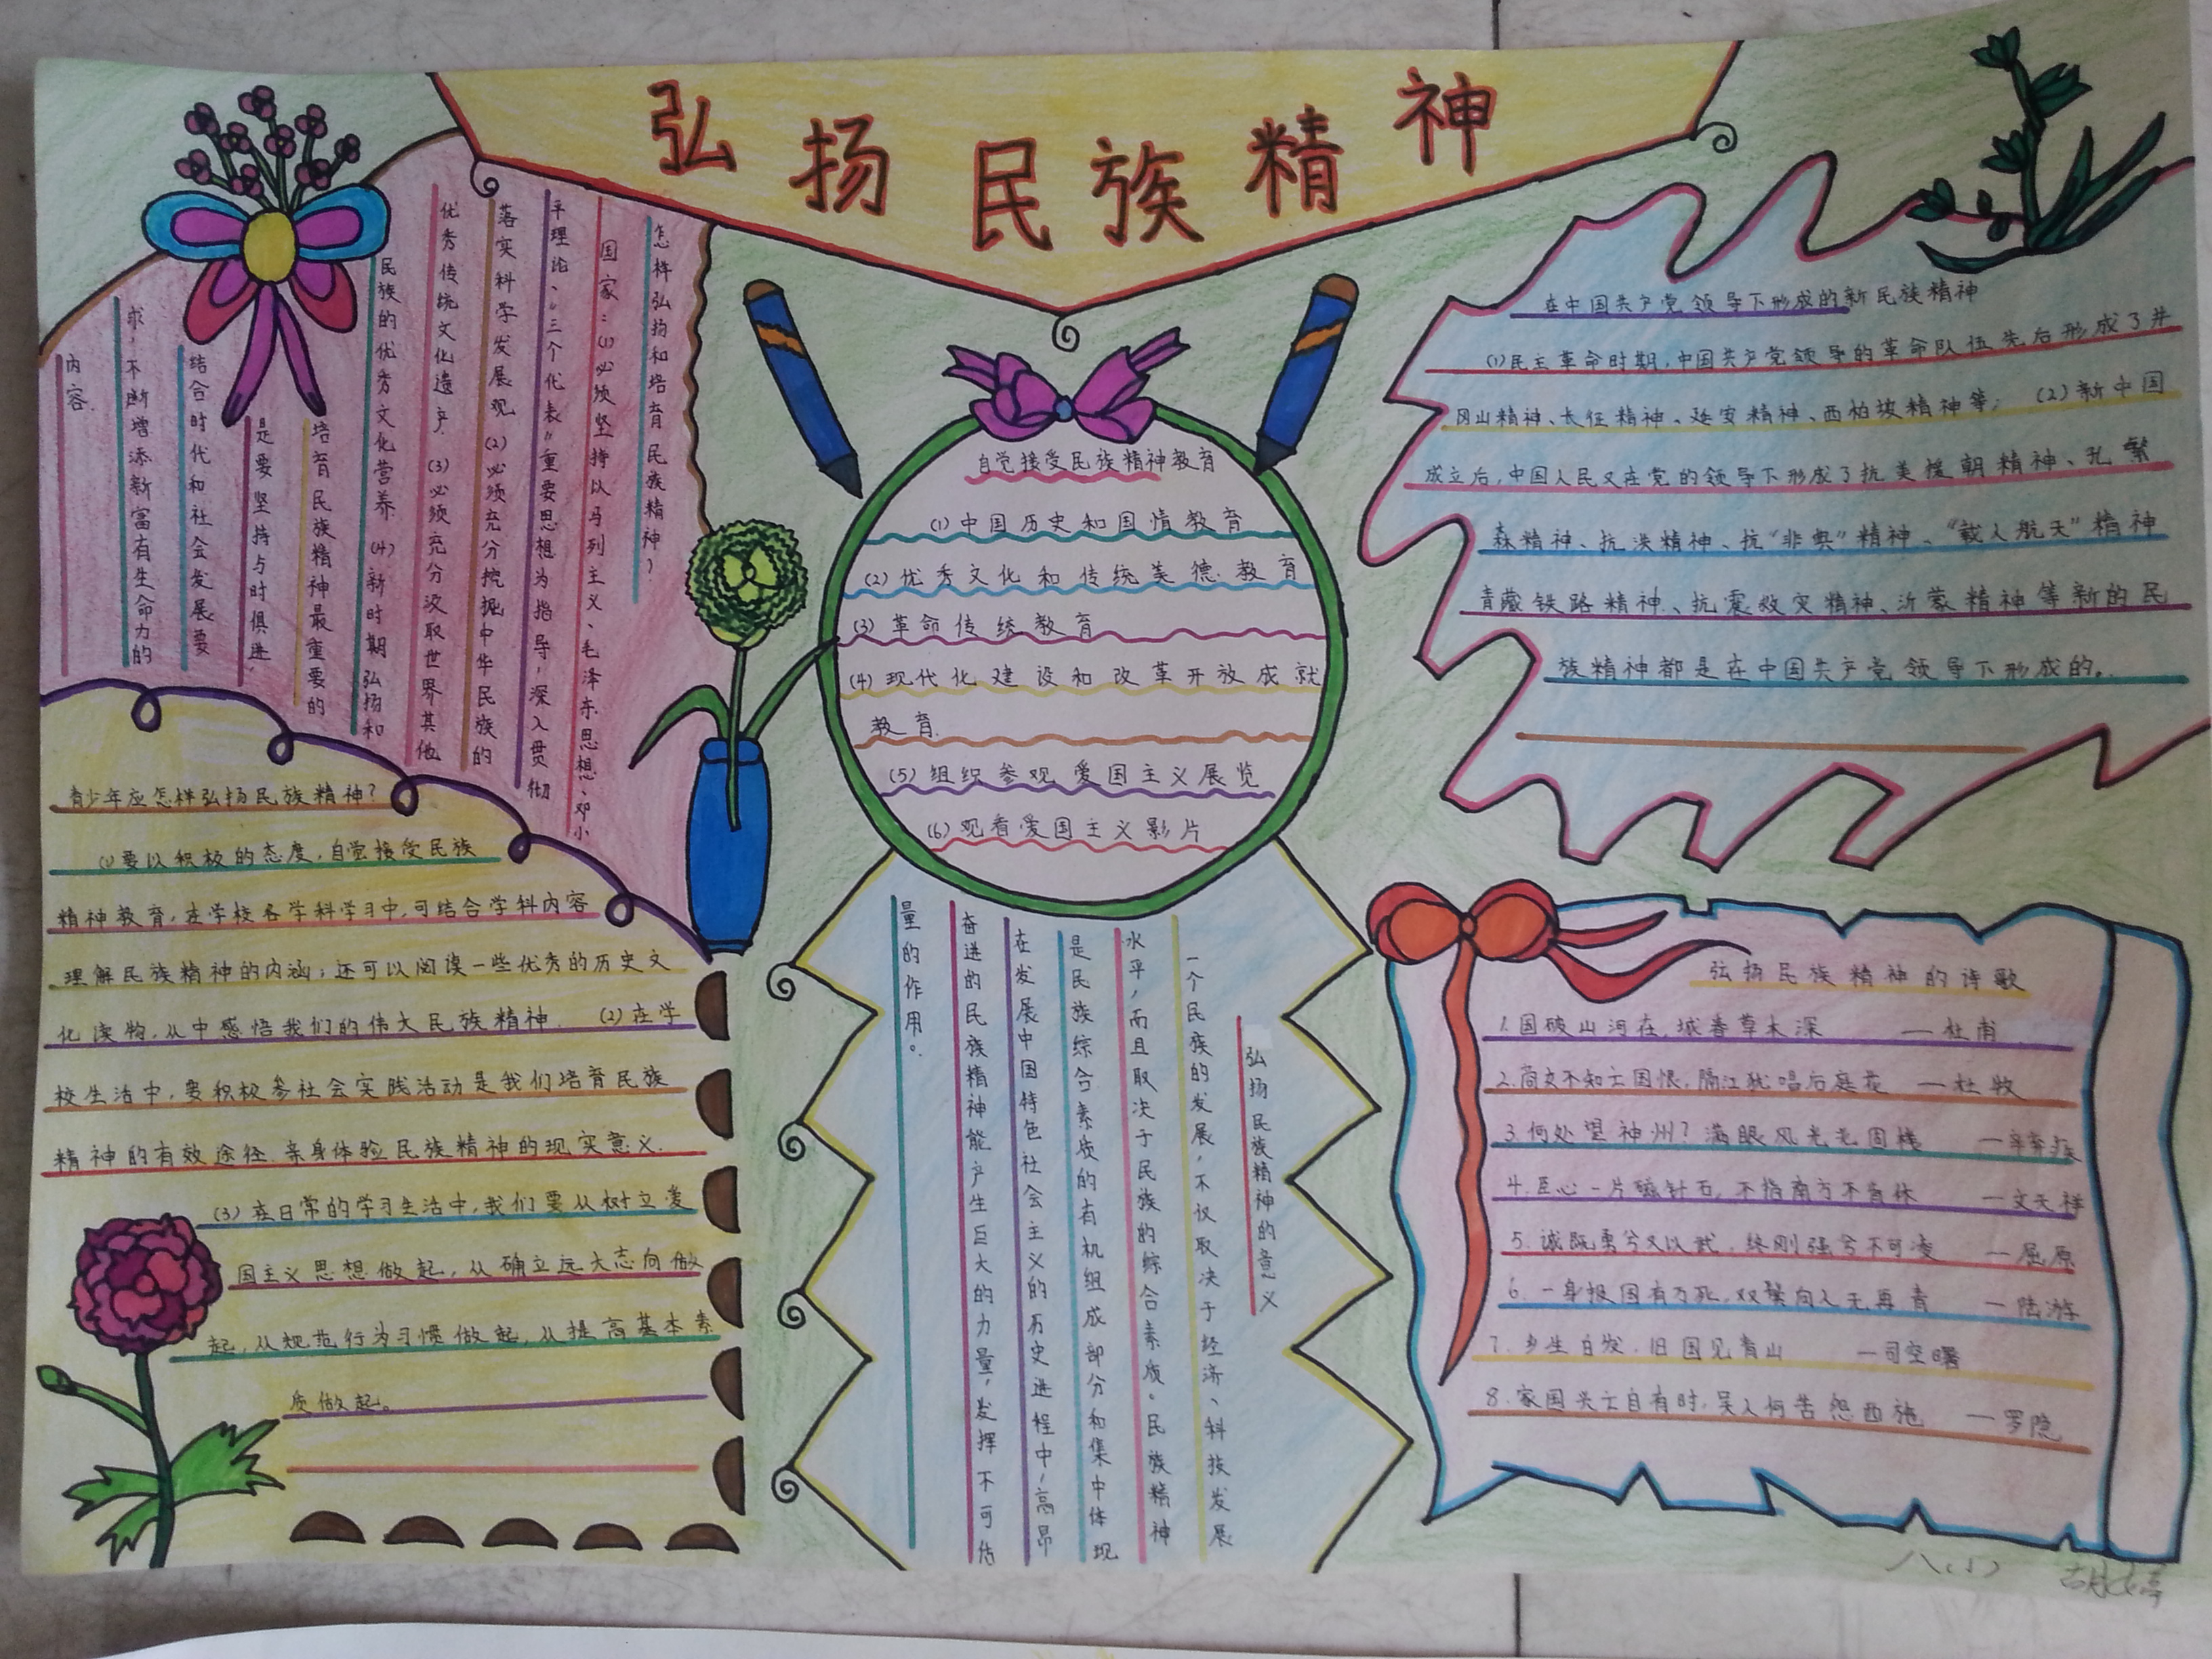 弘扬民族精神
怎样弘扬和培育民族精神
国家：(1)必须坚持以马列主义、毛泽东思想、邓小
平理论、“三个代表”重要思想为指导，深入贯彻
落实科学发展观 (2)必须充分挖掘中华民族的
优秀传统文化遗产 (3)必须充分汲取世界其他
民族的优秀文化营养 (4)新时期弘扬和
培育民族精神最重要的
是要坚持与时俱进，
结合时代和社会发展要
求，不断增添新富有生命力的
内容.
青少年应怎样弘扬民族精神？
(1)要以积极的态度，自觉接受民族
精神教育，在学校各学科学习中，可结合学科内容
理解民族精神的内涵；还可以阅读一些优秀的历史文
化读物，从中感悟我们的伟大民族精神. (2)在学
校生活中，要积极参社会实践活动是我们培育民族
精神的有效途径.亲身体验民族精神的现实意义.
(3)在日常的学习生活中，我们要从树立爱
国主义思想做起，从确立远大志向做
起，从规范行为习惯做起，从提高基本素
质做起。
自觉接受民族精神教育
(1)中国历史和国情教育
(2)优秀文化和传统美德教育
(3)革命传统教育
(4)现代化建设和改革开放成就
教育.
(5)组织参观爱国主义展览
(6)观看爱国主义影片
弘扬民族精神的意义
一个民族的发展，不仅取决于经济、科技发展
水平，而且取决于民族的综合素质。民族精神
是民族综合素质的有机组成部分和集中体现
在发展中国特色社会主义的历史进程中，高昂
奋进的民族精神能产生巨大的力量，发挥不可估
量的作用。
在中国共产党领导下形成的新民族精神
(1)民主革命时期，中国共产党领导的革命队伍先后形成了井
冈山精神、长征精神、延安精神、西柏坡精神等； (2)新中国
成立后，中国人民又在党的领导下形成了抗美援朝精神、孔繁
森精神、抗洪精神、抗“非典”精神、“载人航天”精神
青藏铁路精神、抗震救灾精神、沂蒙精神等新的民
族精神都是在中国共产党领导下形成的。
弘扬民族精神的诗歌
1.国破山河在，城春草木深 —杜甫
2.商女不知亡国恨，隔江犹唱后庭花 —杜牧
3.何处望神州？满眼风光北固楼 —辛弃疾
4.臣心一片磁针石，不指南方不肯休 —文天祥
5.诚既勇兮又以武，终刚强兮不可凌 —屈原
6.一身报国有万死，双鬓向人无再青 —陆游
7.乡生白发，旧国见青山 —司空曙
8.家国兴亡自有时，吴人何苦怨西施 —罗隐